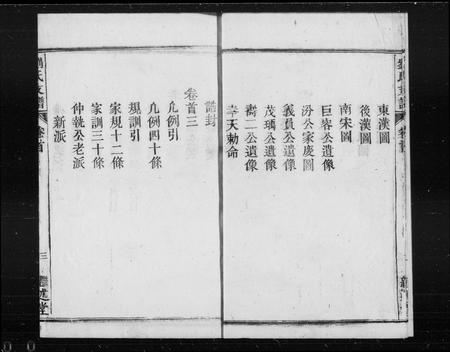 東漢圖
後漢圖
南宋圖
巨容公遺像
汾公家慶圖
義員公遺像
茂瑀公遺像
喬二公遺像
奉天勅命
誥封
卷首三
凡例引
凡例四十條
規訓引
家規十二條
家訓三十條
仲執公老派
新派
劉氏支譜
卷首
三